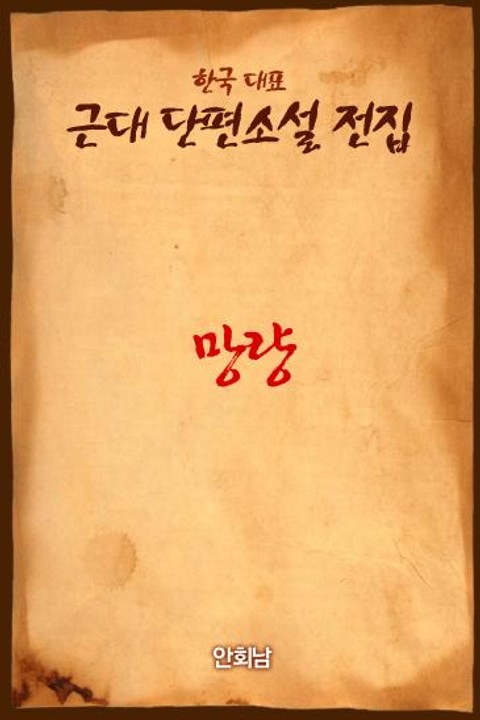 한국 대표
근대 단편소설 전집
망량
안회남